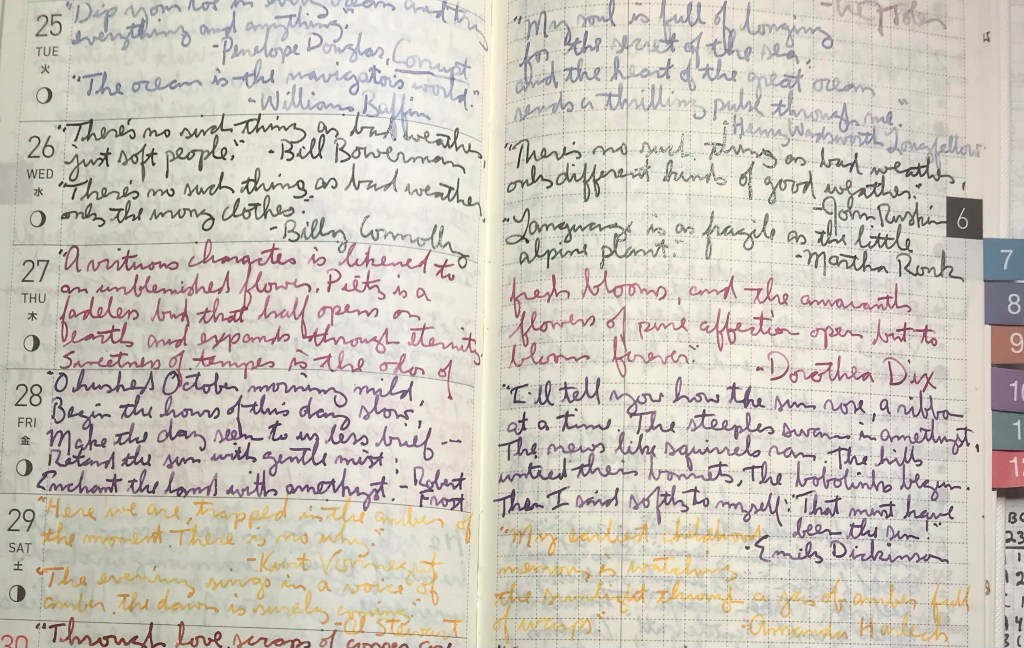 25
TUE
火
"Dip your toe in every ocean and try
everything and anything."
-Penelope Douglas, Corrupt
"The ocean is the navigator's world."
-William Baffin
26
WED
水
"There's no such thing as bad weather,
just soft people." -Bill Bowerman
"There's no such thing as bad weather,
only the wrong clothes."
-Billy Connolly
27
THU
木
"A virtuous character is likened to
an unblemished flower. Piety is a
fadeless bud that half opens on
earth and expands through eternity.
Sweetness of temper is the odor of
28
FRI
金
"O hushed October morning mild,
Begin the hours of this day slow,
Make the day seem to us less brief --
Retard the sun with gentle mist;
Enchant the land with amethyst." -Robert
Frost
29
SAT
土
"Here we are, trapped in the amber of
the moment. There is no why."
-Kurt Vonnegut
"The evening sings in a voice of
amber, the dawn is surely coming."
-Al Stewart
30
"Through love, scraps of
"My soul is full of longing
for the secret of the sea,
and the heart of the great ocean
sends a thrilling pulse through me."
-Henry Wadsworth Longfellow
"There's no such thing as bad weather,
only different kinds of good weather."
-John Ruskin
"Language is as fragile as the little
alpine plant." -Martha Ronk
fresh blooms, and the amaranth
flowers of pure affection open but to
bloom forever." -Dorothea Dix
"I'll tell you how the sun rose, a ribbon
at a time. The steeples swam in amethyst,
The news like squirrels ran. The hills
untied their bonnets, The bobolinks begun.
Then I said softly to myself: That must have
been the sun!"
-Emily Dickinson
"My earliest childhood
memory is watching
the sunlight through a jar of amber full
of wasps." -Amanda Harlech
6
7
8
9
10
1
1